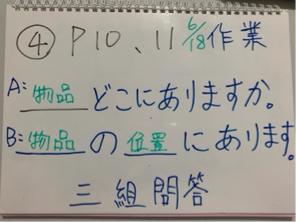 ④ P10、11 6/18作業
A:物品どこにありますか。
B:物品の位置にあります。
三組問答